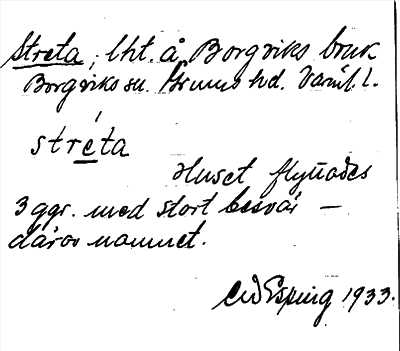 Streta, lht. å Borgviks bruk
Borgviks sn. Grums hd. Värml. l.
streta
Huset flyttades
3 ggr. med stort besvär –
därav namnet.
Esping 1933.